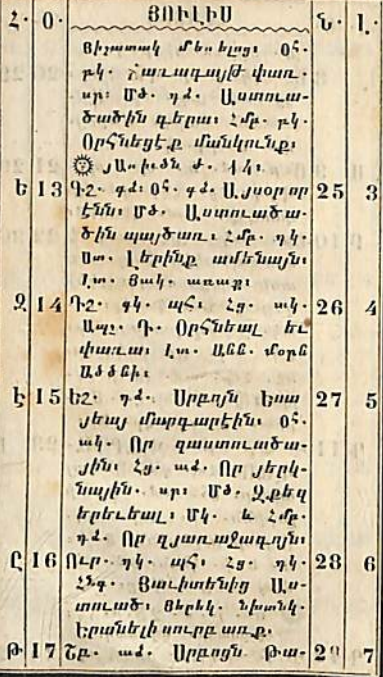 Հ· Օ· ՅՈՒԼԻՍ Ն· Լ·
Յիշատակ մեռելոց։ Օհ·
բկ· Ճառագայթ փառ·
սր։ Մծ· դձ· Աստուա-
ծածին զքերա։ Հմբ· բկ·
Օրհնեցէք մանկունք։
յԱռիւծն ժ· ՚ի կ։
Ե 13 Դշ· գձ։ Օհ· գձ· Այսօր որ 25 3
էնն։ Մծ· Աստուածա-
ծին պայծառ։ Հմբ· դկ·
Ստ· Լերինք ամենայն։
Լտ· Յակ· առաք։
Զ 14 Դշ· գկ· պհ։ Հց· ակ· 26 4
Ապշ· Գ· Օրհնեալ եւ
փառա։ Լտ· Աննայի մօրն
Ածածնի։
Է 15 Եշ· դձ· Սրբոյն Եսա 27 5
յեայ մարգարէին։ Օհ·
ակ· Որ զաստուածա-
յին։ Հց· ած· Որ յերկ-
նային· սր։ Մծ· Զքեզ
երեւեալ։ Մկ· և Հմբ·
դձ· Որ զյառաջագոյն։
Ը 16 Ուր· դկ· պհ։ Հց· դկ· 28 6
Հնգ· Յաւիտենից Աս-
տուած։ Ցերեկ· նխտնկ·
Երանելի սուրբ առ.ք.
Թ 17 Շբ· ած· Սրբոցն Թա- 29 7